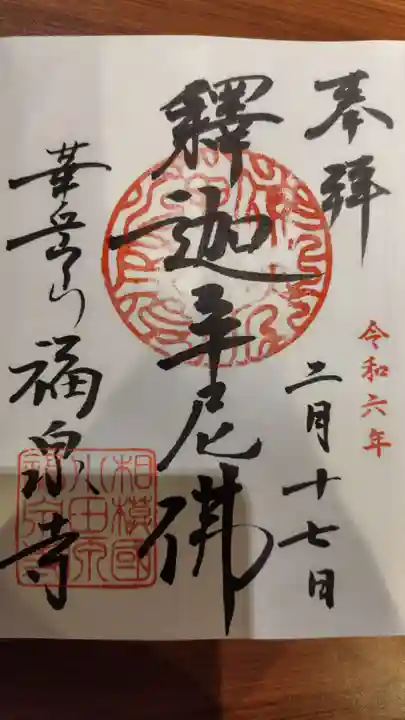 奉拝
令和六年
二月十七日
釋迦牟尼佛
華岳山福泉寺
相模國
小田原